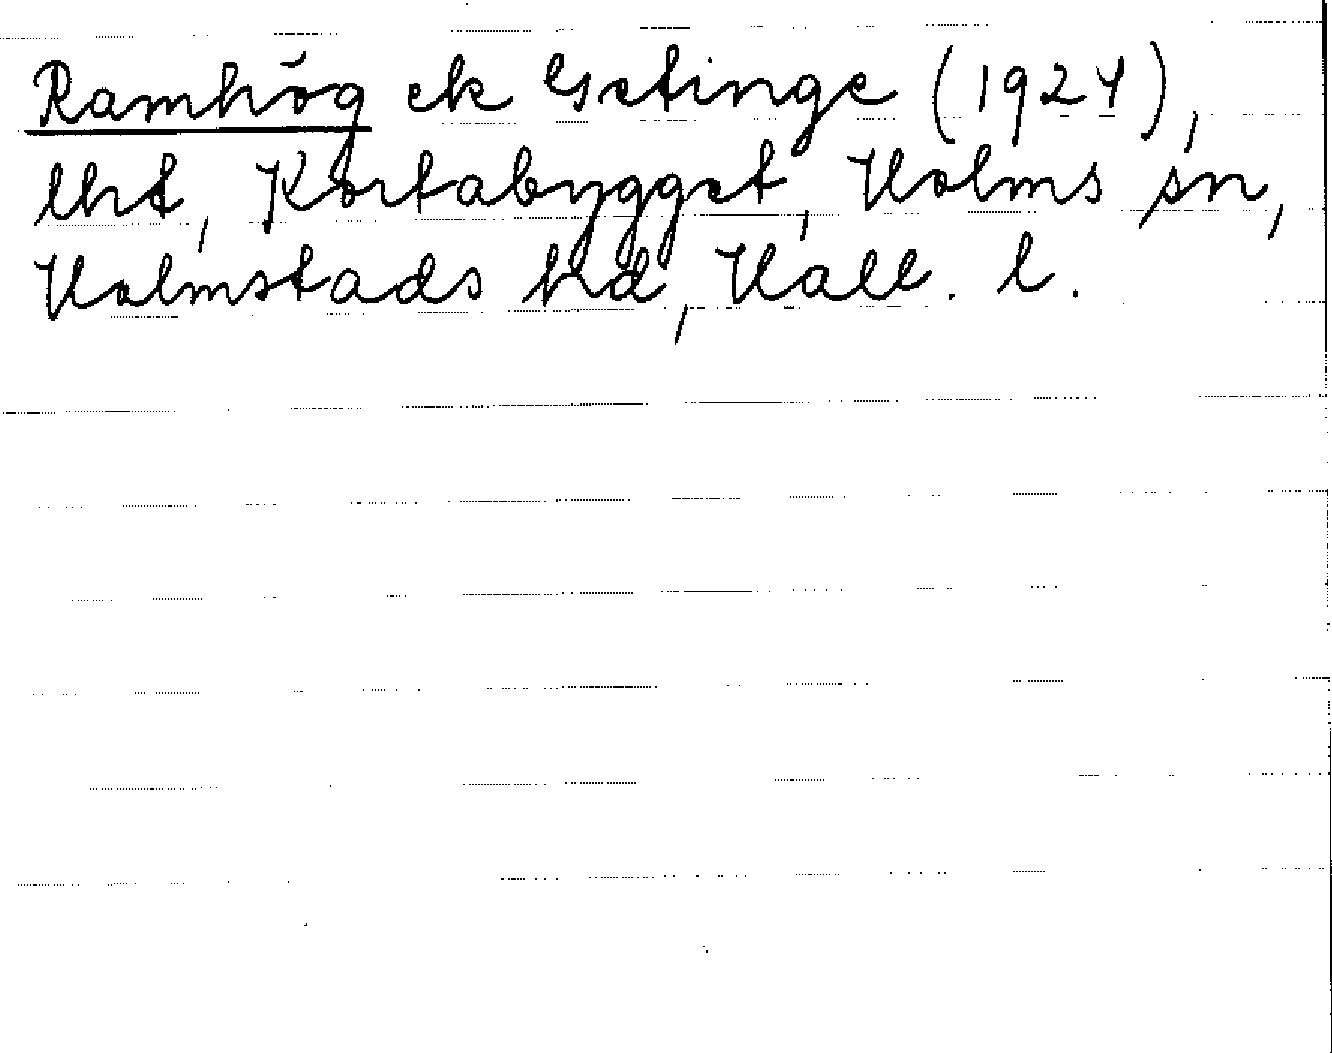 Ramhög ek Getinge (1924),
lht, Kortabygget, Holms sn,
Halmstads hd, Hall. l.